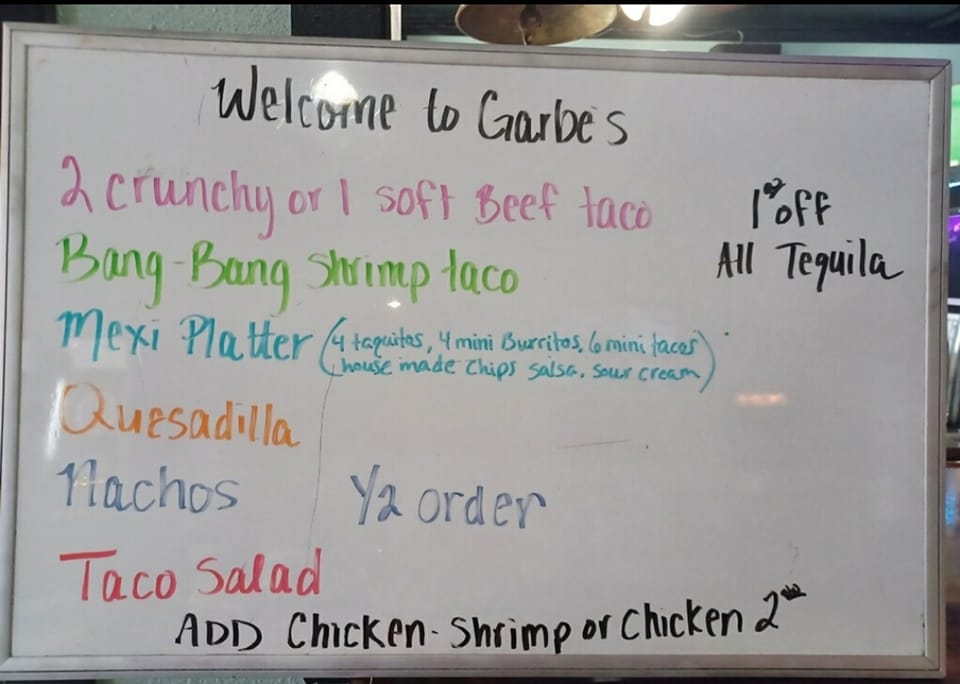 Welcome to Garbe's
2 crunchy or 1 soft Beef taco
1⁰⁰ off
All Tequila
Bang-Bang Shrimp taco
Mexi Platter (4 taquitos, 4 mini Burritos, 6 mini tacos
house made Chips salsa, sour cream)
Quesadilla
Nachos 1/2 order
Taco Salad
ADD Chicken - Shrimp or Chicken 2⁰⁰